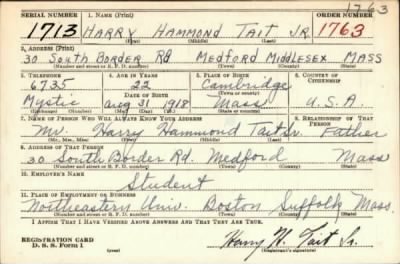 1763
SERIAL NUMBER 1. NAME (Print) ORDER NUMBER
1713 HARRY HAMMOND TAIT JR. 1763
(First) (Middle) (Last)
2. ADDRESS (Print)
30 South Border Rd. MEDFORD MIDDLESEX MASS
(Number and street or R. F. D. number) (Town) (County) (State)
3. TELEPHONE 4. AGE IN YEARS 5. PLACE OF BIRTH 6. COUNTRY OF CITIZENSHIP
6735 22 Cambridge
DATE OF BIRTH (Town or county)
Mystic Aug 31 1918 Mass U.S.A.
(Exchange) (Number) (Mo.) (Day) (Yr.) (State or country)
7. NAME OF PERSON WHO WILL ALWAYS KNOW YOUR ADDRESS 8. RELATIONSHIP OF THAT PERSON
Mr. Harry Hammond Tait Sr. Father
(Mr., Mrs., Miss) (First) (Middle) (Last)
9. ADDRESS OF THAT PERSON
30 South Border Rd. Medford Mass
(Number and street or R. F. D. number) (Town) (County) (State)
10. EMPLOYER'S NAME
Student
11. PLACE OF EMPLOYMENT OR BUSINESS
Northeastern Univ. Boston Suffolk Mass.
(Number and street or R. F. D. number) (Town) (County) (State)
I AFFIRM THAT I HAVE VERIFIED ABOVE ANSWERS AND THAT THEY ARE TRUE.
REGISTRATION CARD
D. S. S. Form 1 Harry H. Tait Jr.
(Registrant's signature)